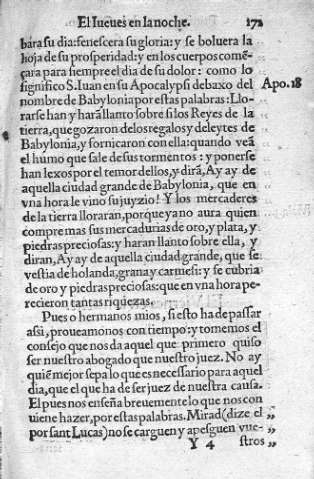 El Iueues en la noche. 172
bara su dia: fenescera su gloria: y se boluera la
hoja de su prosperidad: y en los cuerpos come-
çara para siempre el dia de su dolor: como lo
significo S. Iuan en su Apocalypsi debaxo del Apo. 18
nombre de Babylonia por estas palabras: Llo-
rarse han y harã llanto sobre si los Reyes de la
tierra, que gozaron de los regalos y deleytes de
Babylonia, y fornicaron con ella: quando veã
el humo que sale de sus tormentos: y ponerse
han lexos por el temor dellos, y dirã, Ay ay de
aquella ciudad grande de Babylonia, que en
vna hora le vino su juyzio! Y los mercaderes
de la tierra lloraran, porque ya no aura quien
compre mas sus mercadurias de oro, y plata, y
piedras preciosas: y haran llanto sobre ella, y
diran, Ay ay de aquella ciudad grande, que se
vestia de holanda, grana y carmesi: y se cubria
de oro y piedras preciosas: que en vna hora pe-
recieron tantas riquezas.
Pues o hermanos mios, si esto ha de passar
assi, proueamonos con tiempo: y tomemos el
consejo que nos da aquel que primero quiso
ser nuestro abogado que nuestro juez. No ay
quiẽ mejor sepa lo que es necessario para aquel
dia, que el que ha de ser juez de nuestra causa.
El pues nos enseña breuemente lo que nos con
uiene hazer, por estas palabras. Mirad (dize el „
por sant Lucas) no se carguen y apesguen vue- „
Y 4 stros „